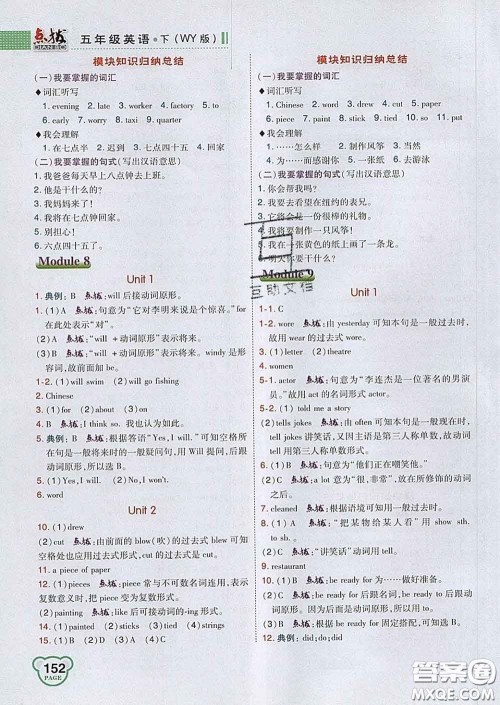 点拨
五年级英语·下(WY版)
模块知识归纳总结
(一)我要掌握的词汇
◆词汇听写
1. evening 2. late 3. worker 4. factory 5. to
6. early 7. worry 8. taxi 9. quarter
◆我会理解
1. 在七点半 2. 迟到 3. 七点四十五 4. 回家
(二)我要掌握的句式(写出汉语意思)
1. 我爸爸每天早上八点钟去上班。
2. 他是干什么的?
3. 我妈妈来了!
4. 我将在七点钟回家。
5. 别担心!
6. 六点四十五了。
Module 8
Unit 1
1. 典例:B 点拨:will 后接动词原形。
(1)A 点拨:句意为“它对李明来说是个惊喜。”for
在此处表示“对”。
(2)A 点拨:“will +动词原形”表示将来。
(3)A 点拨:“will +动词原形”表示将来。windy 是形
容词,故前面加 be。
1-1. (1)will swim (2)will go fishing
2. Chinese
3. (1)for (2)about (3)for
4. (1)B (2)C (3)A
5. 典例:B 点拨:根据答语“Yes, I will.”可知空格所
在句是一般将来时的一般疑问句,用 Will 提问,后面跟
动词原形,所以选 B。
5-1. (1)Will (2)No, I won't.
6. word
Unit 2
10. (1)drew
(2)C 点拨:由前面的 blow(吹)的过去式 blew 可知
空格处也应用过去式形式,cut 的过去式是 cut。
11. a piece of paper
12. (1)pieces 点拨:piece 常与不可数名词连用,表示
复数意义时,把 piece 变为复数形式。
(2)painting 点拨:like 后可接动词的-ing 形式。
14. (1)painted (2)sticks (3)tied
15. (1)B (2)D (3)C (4)A
152
PAGE
模块知识归纳总结
(一)我要掌握的词汇
◆词汇听写
1. Chinese 2. word 3. drew 4. cut 5. paper
6. piece 7. paint 8. stick 9. tied 10. so 11. put
◆我会理解
1. ……怎么样 2. 制作风筝 3. 当然
4. 为……而感谢你 5. 一张纸 6. 去游泳
(二)我要掌握的句式(写出汉语意思)
1. 你会帮我吗?
2. 我要去看居住在纽约的表兄。
3. 它将会是一份很棒的礼物。
4. 我将要制作一只风筝!
5. 我在一张黄色的纸上画了一条龙。
6. 明天你要干什么?
Module 9
互助文档
Unit 1
1-1. C
1-2. wore 点拨:由 yesterday 可知本句是一般过去时,
故用 wear 的过去式 wore。
3. (1)letter (2)theatre
4. women
5-1. actor 点拨:句意为“李连杰是一位著名的男演
员。”故用 act 的名词形式 actor。
6. (1) told me a story
(2)tells jokes 点拨:由 often 可知本句是一般现在时,
tell jokes 讲笑话,又因主语是第三人称单数,故用 tell
的第三人称单数形式。
6-1. (1)B 点拨:句意为“他们正在嘲笑他。”
(2)C 点拨:a lot 意为“很,非常”,放在所修饰的动词
之后。
7. cleaned 点拨:根据语境可知用一般过去时。
8. (1)B 点拨:“把某物给某人看”用 show sth.
to sb.。
(2)C 点拨:“讲笑话”动词用 tell。
9. restaurant
10. (1)C 点拨:be ready for 为……做好准备。
(2)B 点拨:be ready for 意为“为……准备好”。
(3)C 点拨:根据 be ready for 固定搭配,可知选 B。
12. 典例:did;do;did
答案圈
MXQE.COM